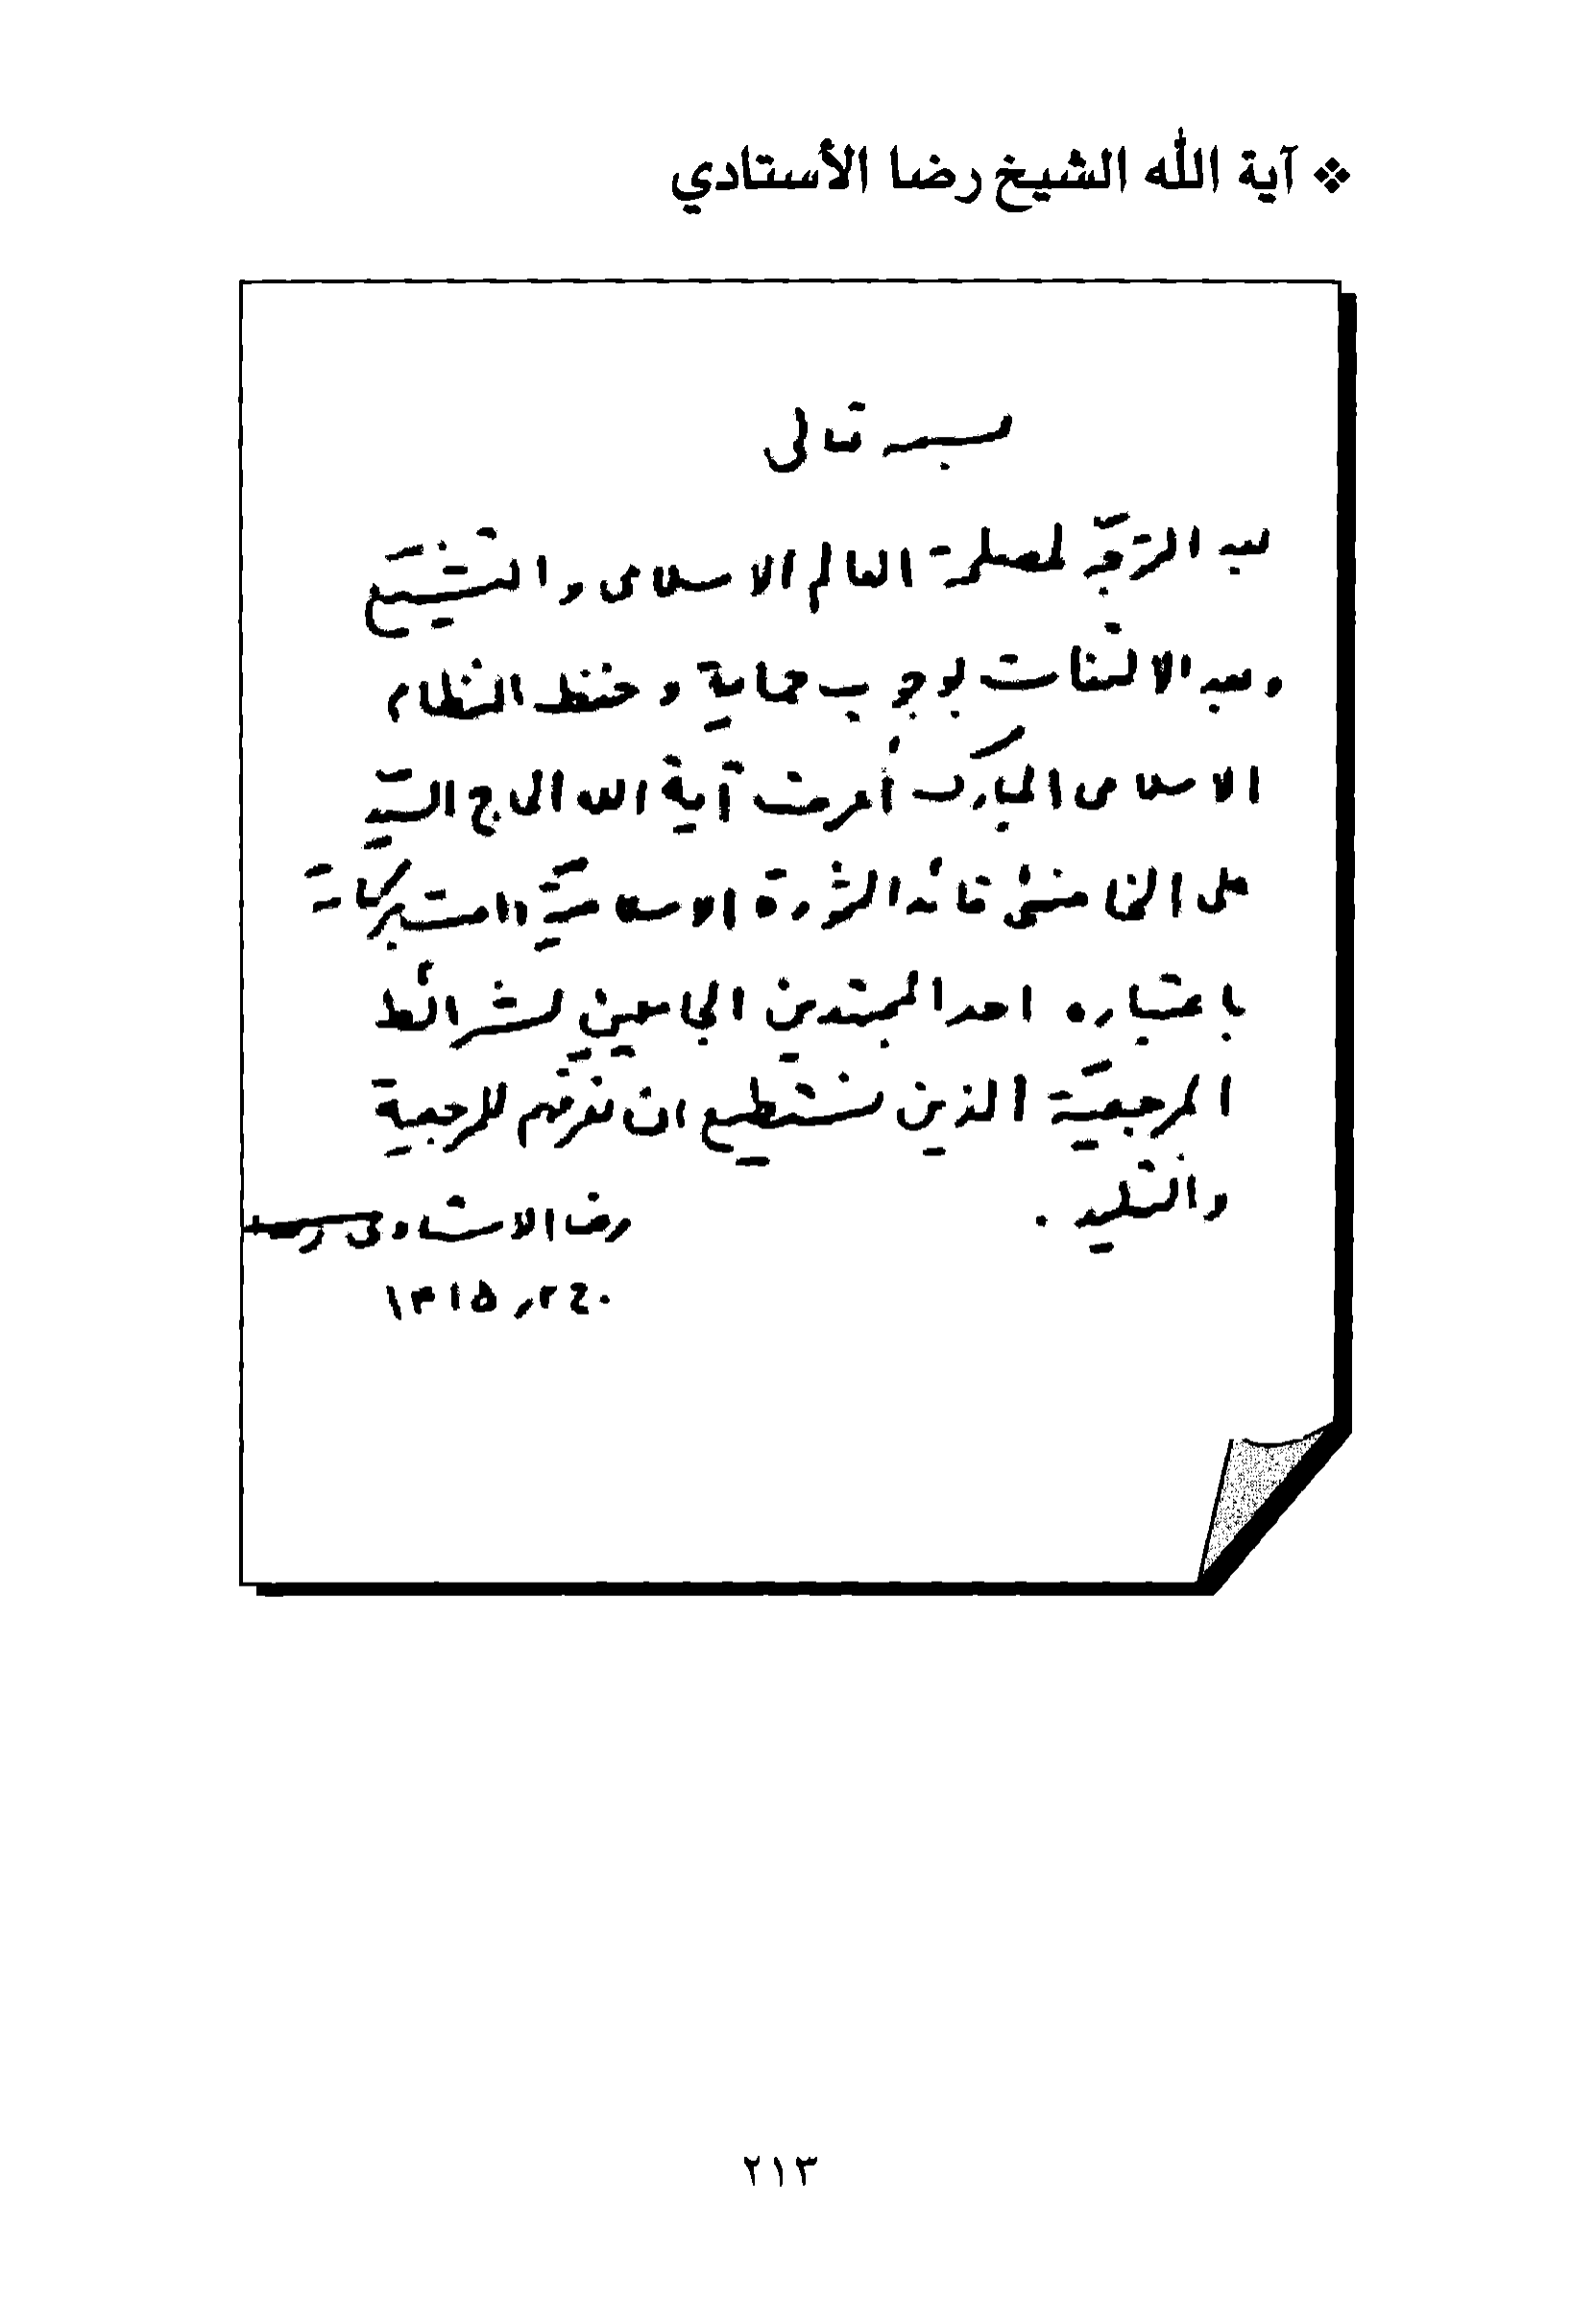 ❖ آية الله الشيخ رضا الأستادي
بسمه تعالى
بعد التوجّه لمصلحة العالم الاسلامى والتشيّع
وبعد الالتفات لوجوب حماية و حفظ النظام
الاسلامى المبارك أُعرف آية الله الحاج السيّد
على الخامنئى قائد الثورة الاسلاميّة دامت بركاته
باعتباره احد المجتهدين الجامعين لشرائط
المرجعيّة الذين نستطيع ان نعرفهم للمرجعية
والتقليد .
رضا الاستادى
٢١٣